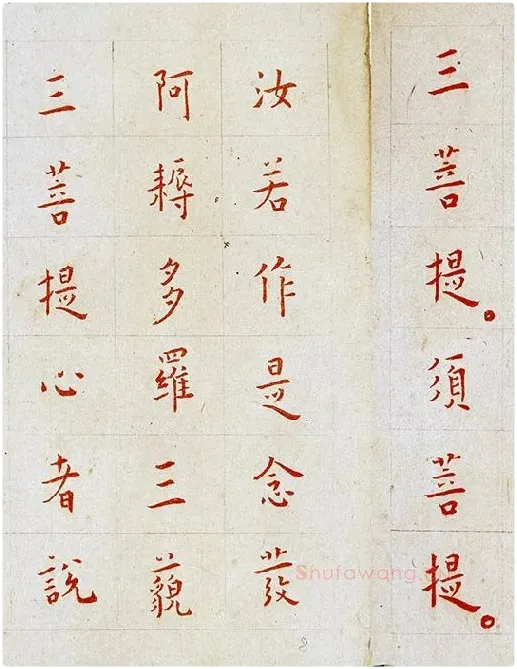 三菩提。須菩提。
汝若作是念發
阿耨多羅三藐
三菩提心者說
Shufawang.cn
8